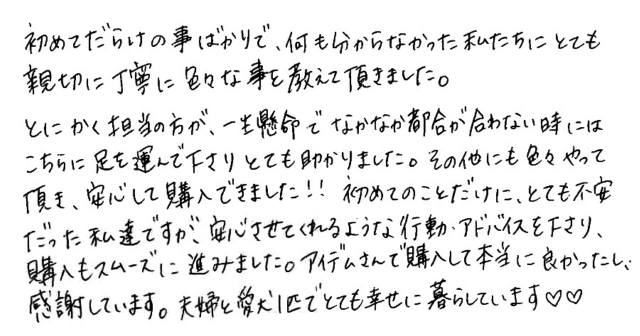 初めてだらけの事ばかりで、何も分からなかった私たちにとても
親切に丁寧に色々な事を教えて頂きました。
とにかく担当の方が、一生懸命でなかなか都合が合わない時には
こちらに足を運んで下さりとても助かりました。その他にも色々やって
頂き、安心して購入できました!! 初めてのことだけに、とても不安
だった私達ですが、安心させてくれるような行動・アドバイスを下さり、
購入もスムーズに進みました。アイデムさんで購入して本当に良かったし、
感謝しています。夫婦と愛犬1匹でとても幸せに暮らしています♡♡